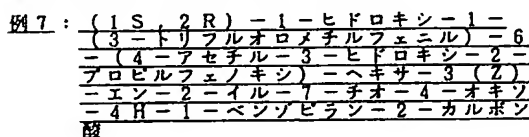 例7：(1S,2R)-1-ヒドロキシ-1-
(3-トリフルオロメチルフェニル)-6
-(4-アセチル-3-ヒドロキシ-2-
プロピルフェノキシ)-ヘキサ-3(Z)
-エン-2-イル-7-チオ-4-オキソ
-4H-1-ベンゾピラン-2-カルボン
酸